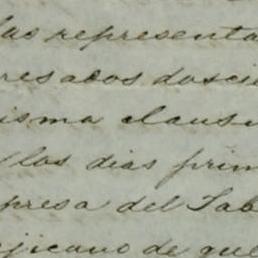 las representa
resados doscie
isma clausu
los dias prim
presa del Tab
ejicano de que